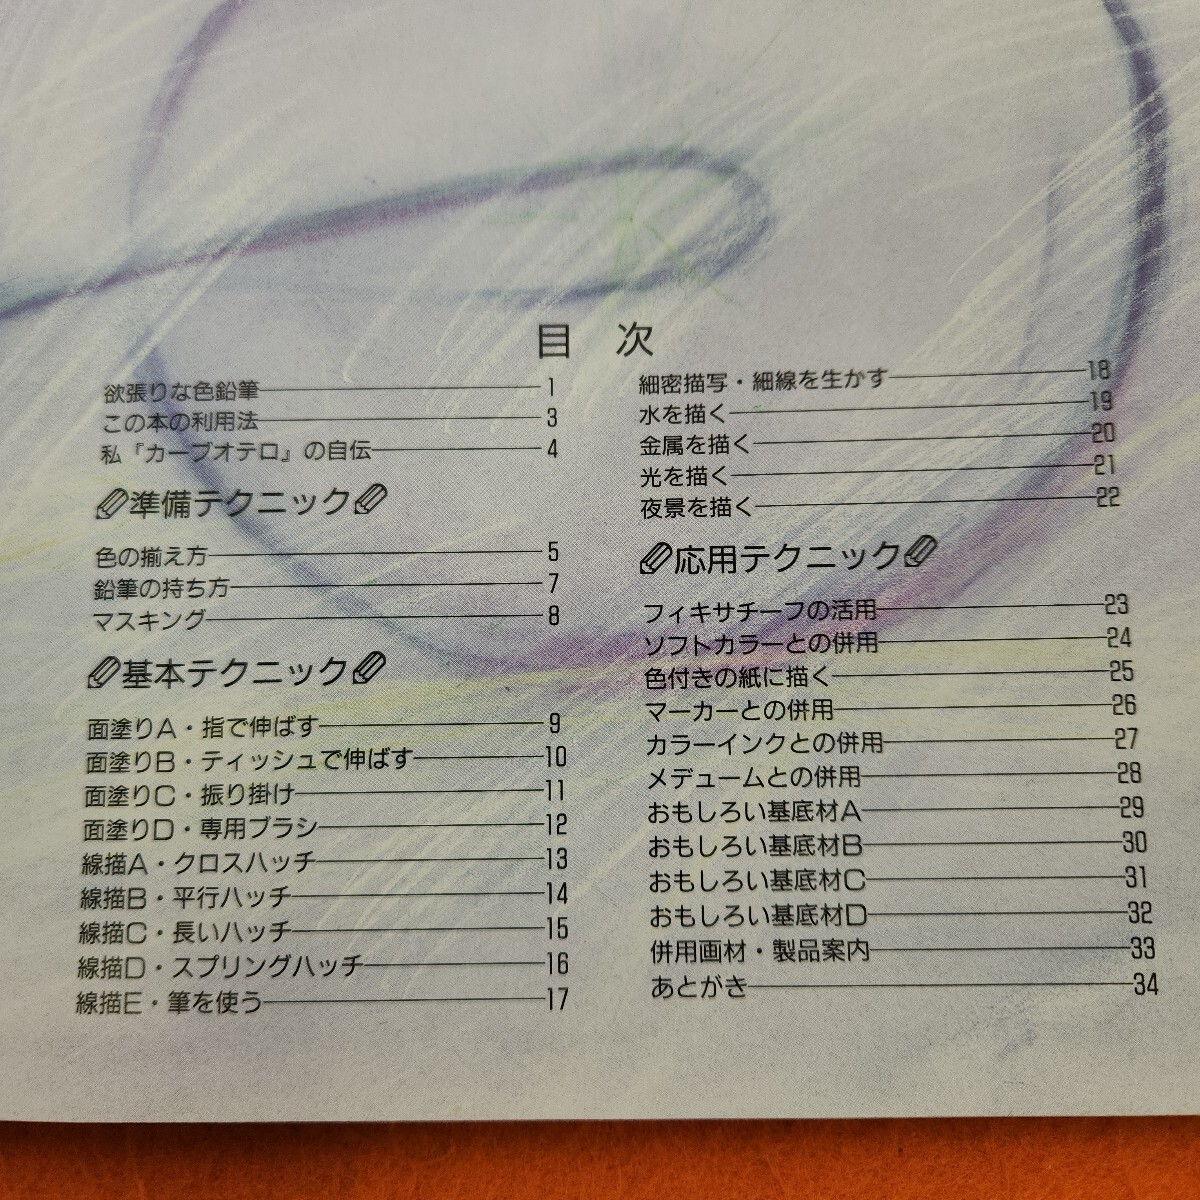 目 次
欲張りな色鉛筆 1
この本の利用法 3
私『カーブオテロ』の自伝 4
準備テクニック
色の揃え方 5
鉛筆の持ち方 7
マスキング 8
基本テクニック
面塗りA・指で伸ばす 9
面塗りB・ティッシュで伸ばす 10
面塗りC・振り掛け 11
面塗りD・専用ブラシ 12
線描A・クロスハッチ 13
線描B・平行ハッチ 14
線描C・長いハッチ 15
線描D・スプリングハッチ 16
線描E・筆を使う 17
細密描写・細線を生かす 18
水を描く 19
金属を描く 20
光を描く 21
夜景を描く 22
応用テクニック
フィキサチーフの活用 23
ソフトカラーとの併用 24
色付きの紙に描く 25
マーカーとの併用 26
カラーインクとの併用 27
メデュームとの併用 28
おもしろい基底材A 29
おもしろい基底材B 30
おもしろい基底材C 31
おもしろい基底材D 32
併用画材・製品案内 33
あとがき 34